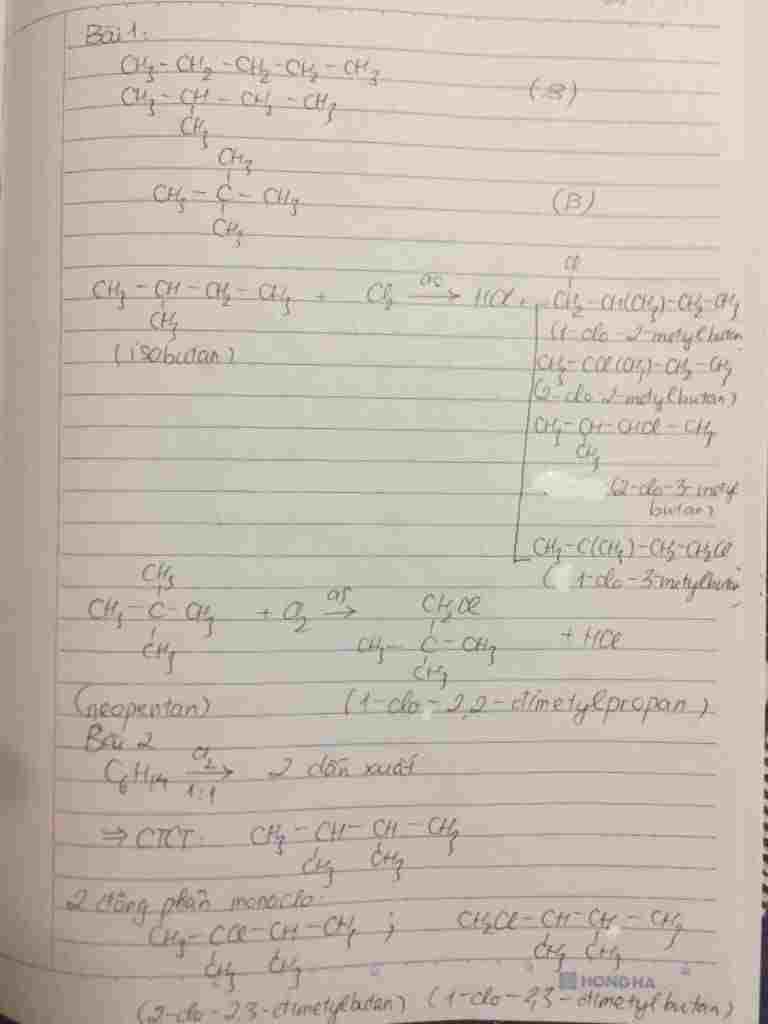 Bài 1:
CH3 - CH2 - CH2 - CH2 - CH3
CH3 - CH - CH2 - CH3
(B)
CH3
CH3
CH3 - C - CH3
(B)
CH3
Cl
CH3 - CH - CH2 - CH3 + Cl2 as→ HCl + CH2 - CH(CH3) - CH2 - CH3
CH3
(1-clo-2-metylbutan
(isobutan)
CH3 - CCl(CH3) - CH2 - CH3
(2-clo-2-metylbutan)
CH3 - CH - CHCl - CH3
CH3
(2-clo-3-metyl
butan)
CH3 - C(CH3) - CH2 - CH2Cl
(1-clo-3-metylbutan
CH3
CH3 - C - CH3 + Cl2 as→
CH3
CH2Cl
CH3 - C - CH3 + HCl
CH3
(neopentan)
(1-clo-2,2-dimetylpropan)
Bài 2
C6H14 Cl2 1:1→ 2 dẫn xuất
⇒ CTCT: CH3 - CH - CH - CH3
CH3 CH3
2 đồng phân monoclo:
CH3 - CCl - CH - CH3 ; CH2Cl - CH - CH - CH3
CH3 CH3 CH3 CH3
HONG HA
(2-clo-2,3-dimetylbutan) (1-clo-2,3-dimetylbutan)